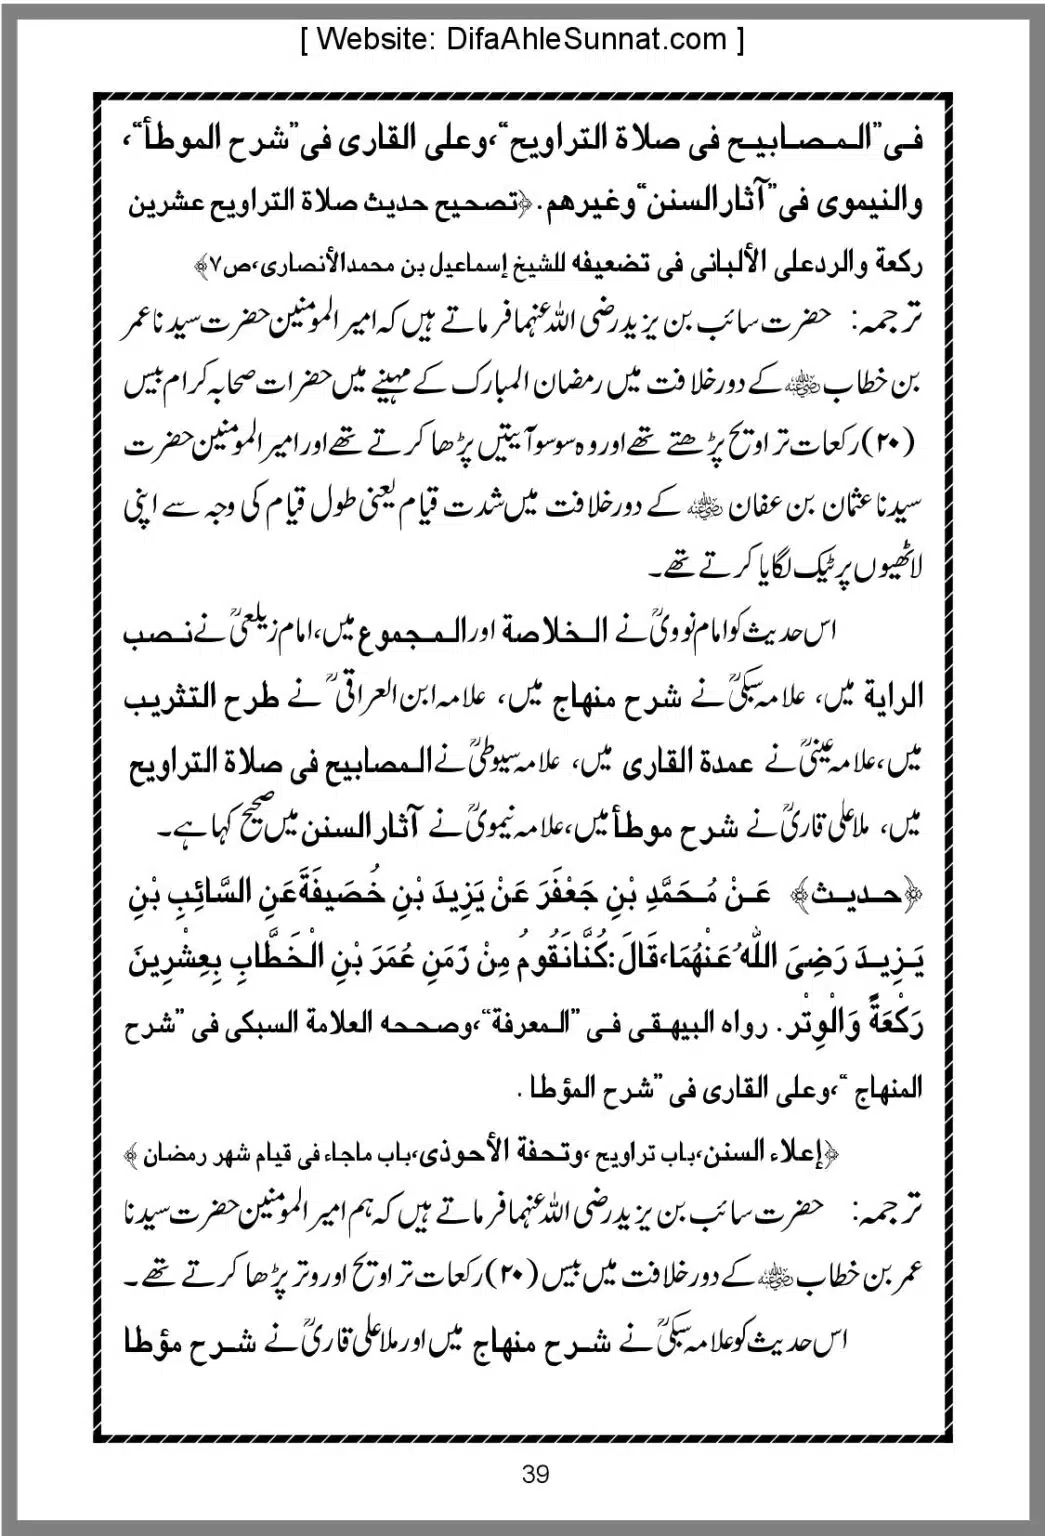 [ Website: DifaAhleSunnat.com ]
فی”المصابیح فی صلاة التراویح“،وعلی القاری فی”شرح الموطأ“،
والنیموی فی”آثارالسنن“وغیرهم.﴿تصحیح حدیث صلاة التراویح عشرین
رکعة والردعلی الألبانی فی تضعیفه للشیخ إسماعیل بن محمدالأنصاری،ص۷﴾
ترجمہ: حضرت سائب بن یزیدرضی اللہ عنہمافرماتے ہیں کہ امیرالمومنین حضرت سیدناعمر
بن خطاب رضی اللہ عنہ کے دورخلافت میں رمضان المبارک کے مہینے میں حضرات صحابہ کرام بیس
(۲۰)رکعات تراویح پڑھتے تھے اوروہ سوسوآیتیں پڑھا کرتے تھے اورامیرالمومنین حضرت
سیدناعثمان بن عفان رضی اللہ عنہ کے دورخلافت میں شدت قیام یعنی طول قیام کی وجہ سے اپنی
لاٹھیوں پرٹیک لگایا کرتے تھے۔
اس حدیث کوامام نوویؒ نے الخلاصة اورالمجموع میں،امام زیلعیؒ نے نصب
الرایة میں، علامہ سبکیؒ نے شرح منهاج میں، علامہ ابن العراقیؒ نے طرح التثریب
میں،علامہ عینیؒ نے عمدة القاری میں، علامہ سیوطیؒ نے المصابیح فی صلاة التراویح
میں، ملاعلی قاریؒ نے شرح موطأ میں،علامہ نیمویؒ نے آثارالسنن میں صحیح کہا ہے۔
﴿حدیث﴾ عَنْ مُحَمَّدِ بْنِ جَعْفَرَ عَنْ یَزِیدَ بْنِ خُصَیفَةَعَنِ السَّائِبِ بْنِ
یَزِیدَ رَضِیَ اللهُ عَنْهُمَا،قَالَ:کُنَّانَقُومُ مِنْ زَمَنِ عُمَرَ بْنِ الْخَطَّابِ بِعِشْرِینَ
رَکْعَةً وَالْوِتْر. رواه البیهقی فی ”المعرفة“،وصححه العلامة السبکی فی ”شرح
المنهاج “،وعلی القاری فی ”شرح المؤطا .
﴿إعلاء السنن،باب تراویح ،وتحفة الأحوذی،باب ماجاء فی قیام شهر رمضان ﴾
ترجمہ: حضرت سائب بن یزیدرضی اللہ عنہمافرماتے ہیں کہ ہم امیرالمومنین حضرت سیدنا
عمربن خطاب رضی اللہ عنہ کے دورخلافت میں بیس (۲۰)رکعات تراویح اوروتر پڑھا کرتے تھے۔
اس حدیث کوعلامہ سبکیؒ نے شرح منهاج میں اورملاعلی قاریؒ نے شرح مؤطا
39